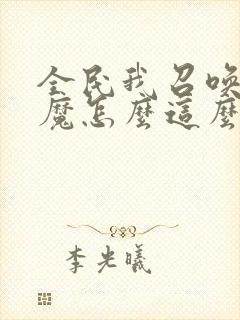 全民我召唤
魔怎麼這麼
李光曦